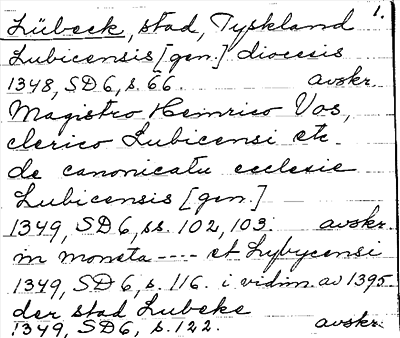 1.
Lübeck, stad, Tyskland
Lubicensis [gen.] diocesis
1348, SD 6, s. 66. avskr.
Magistro Heinrico Vos,
clerico Lubicensi etc.
de canonicatu ecclesie
Lubicensis [gen.]
1349, SD 6, ss. 102, 103. avskr.
in moneta ---- et Lybycensi
1349, SD 6, s. 116. i vidim. av 1395
der stad Lubeke
1349, SD 6, s. 122. avskr.